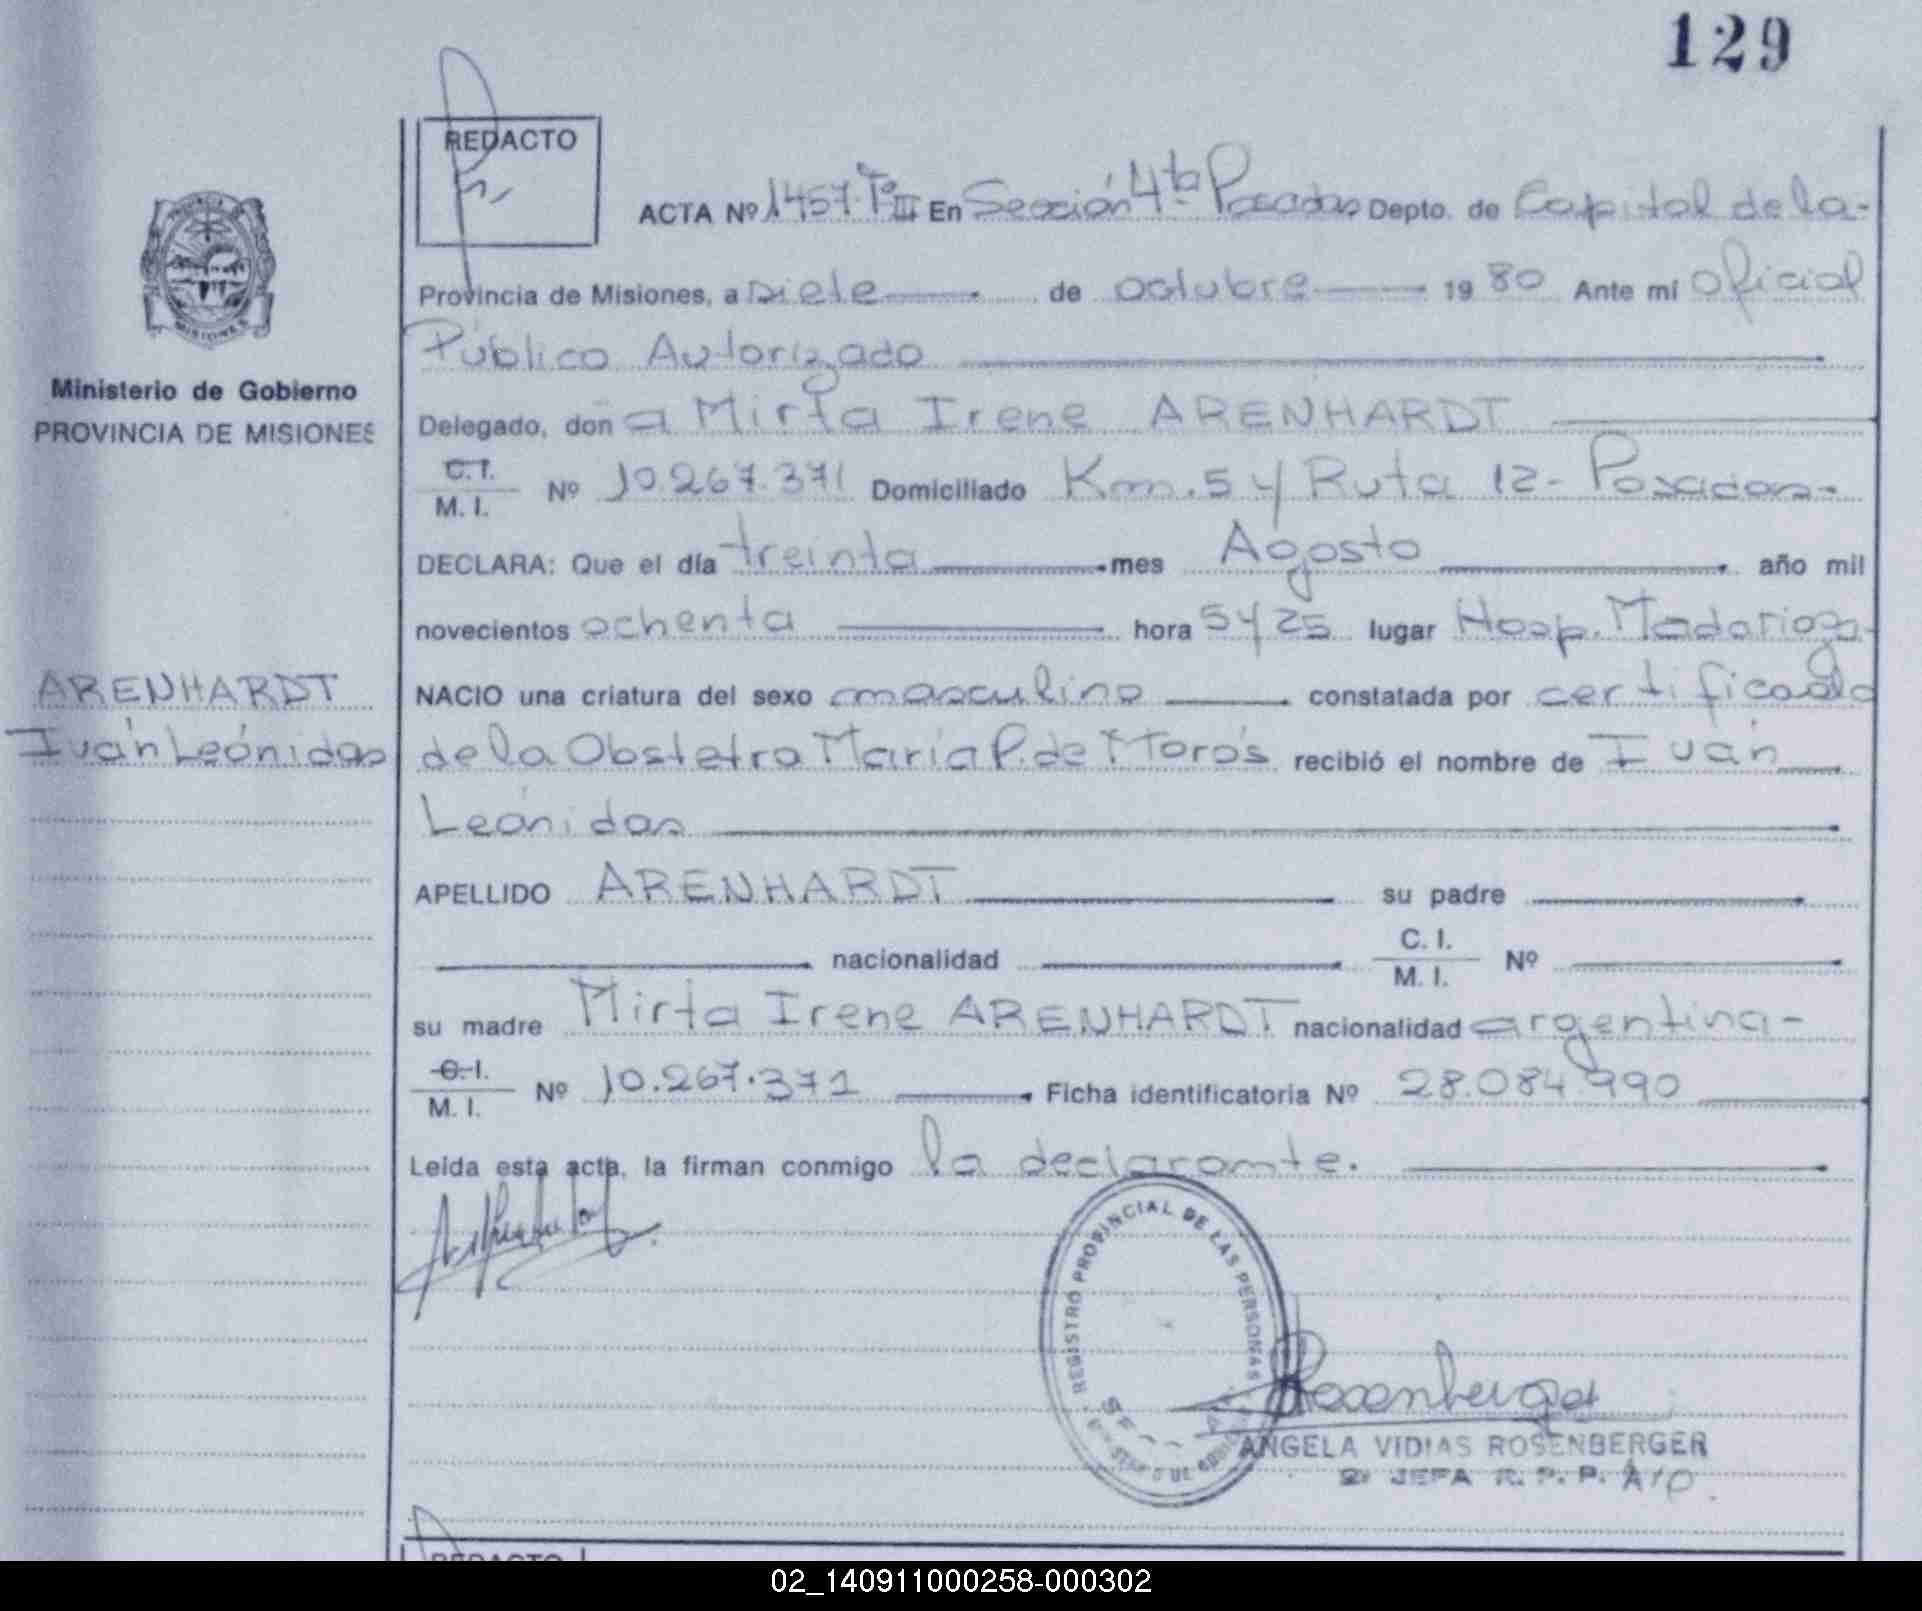 129
REDACTO
ACTA Nº 1457. Tº III En Sección 4ta Posadas Depto. de Capital de la-
Provincia de Misiones, a siete de octubre 1980 Ante mi oficial
Público Autorizado
Delegado, don a Mirta Irene ARENHARDT
C.I.
M. I. Nº 10.267.371 Domiciliado Km. 5 y Ruta 12- Posadas-
DECLARA: Que el día treinta mes Agosto año mil
novecientos ochenta hora 5 y 25 lugar Hosp. Madariaga-
NACIO una criatura del sexo masculino constatada por certificado
de la Obstetra María P. de Morós recibió el nombre de Iván
Leónidas
APELLIDO ARENHARDT su padre
nacionalidad C. I.
M. I. Nº
su madre Mirta Irene ARENHARDT nacionalidad argentina-
C.I.
M. I. Nº 10.267.371 Ficha identificatoria Nº 28.084.990
Leída esta acta, la firman conmigo la declarante.
MISIONES
Ministerio de Gobierno
PROVINCIA DE MISIONES
ARENHARDT
Iván Leónidas
REGISTRO PROVINCIAL DE LAS PERSONAS
Rosenberger
ANGELA VIDIAS ROSENBERGER
JEFA R. P. P.
REDACTO
02_140911000258-000302